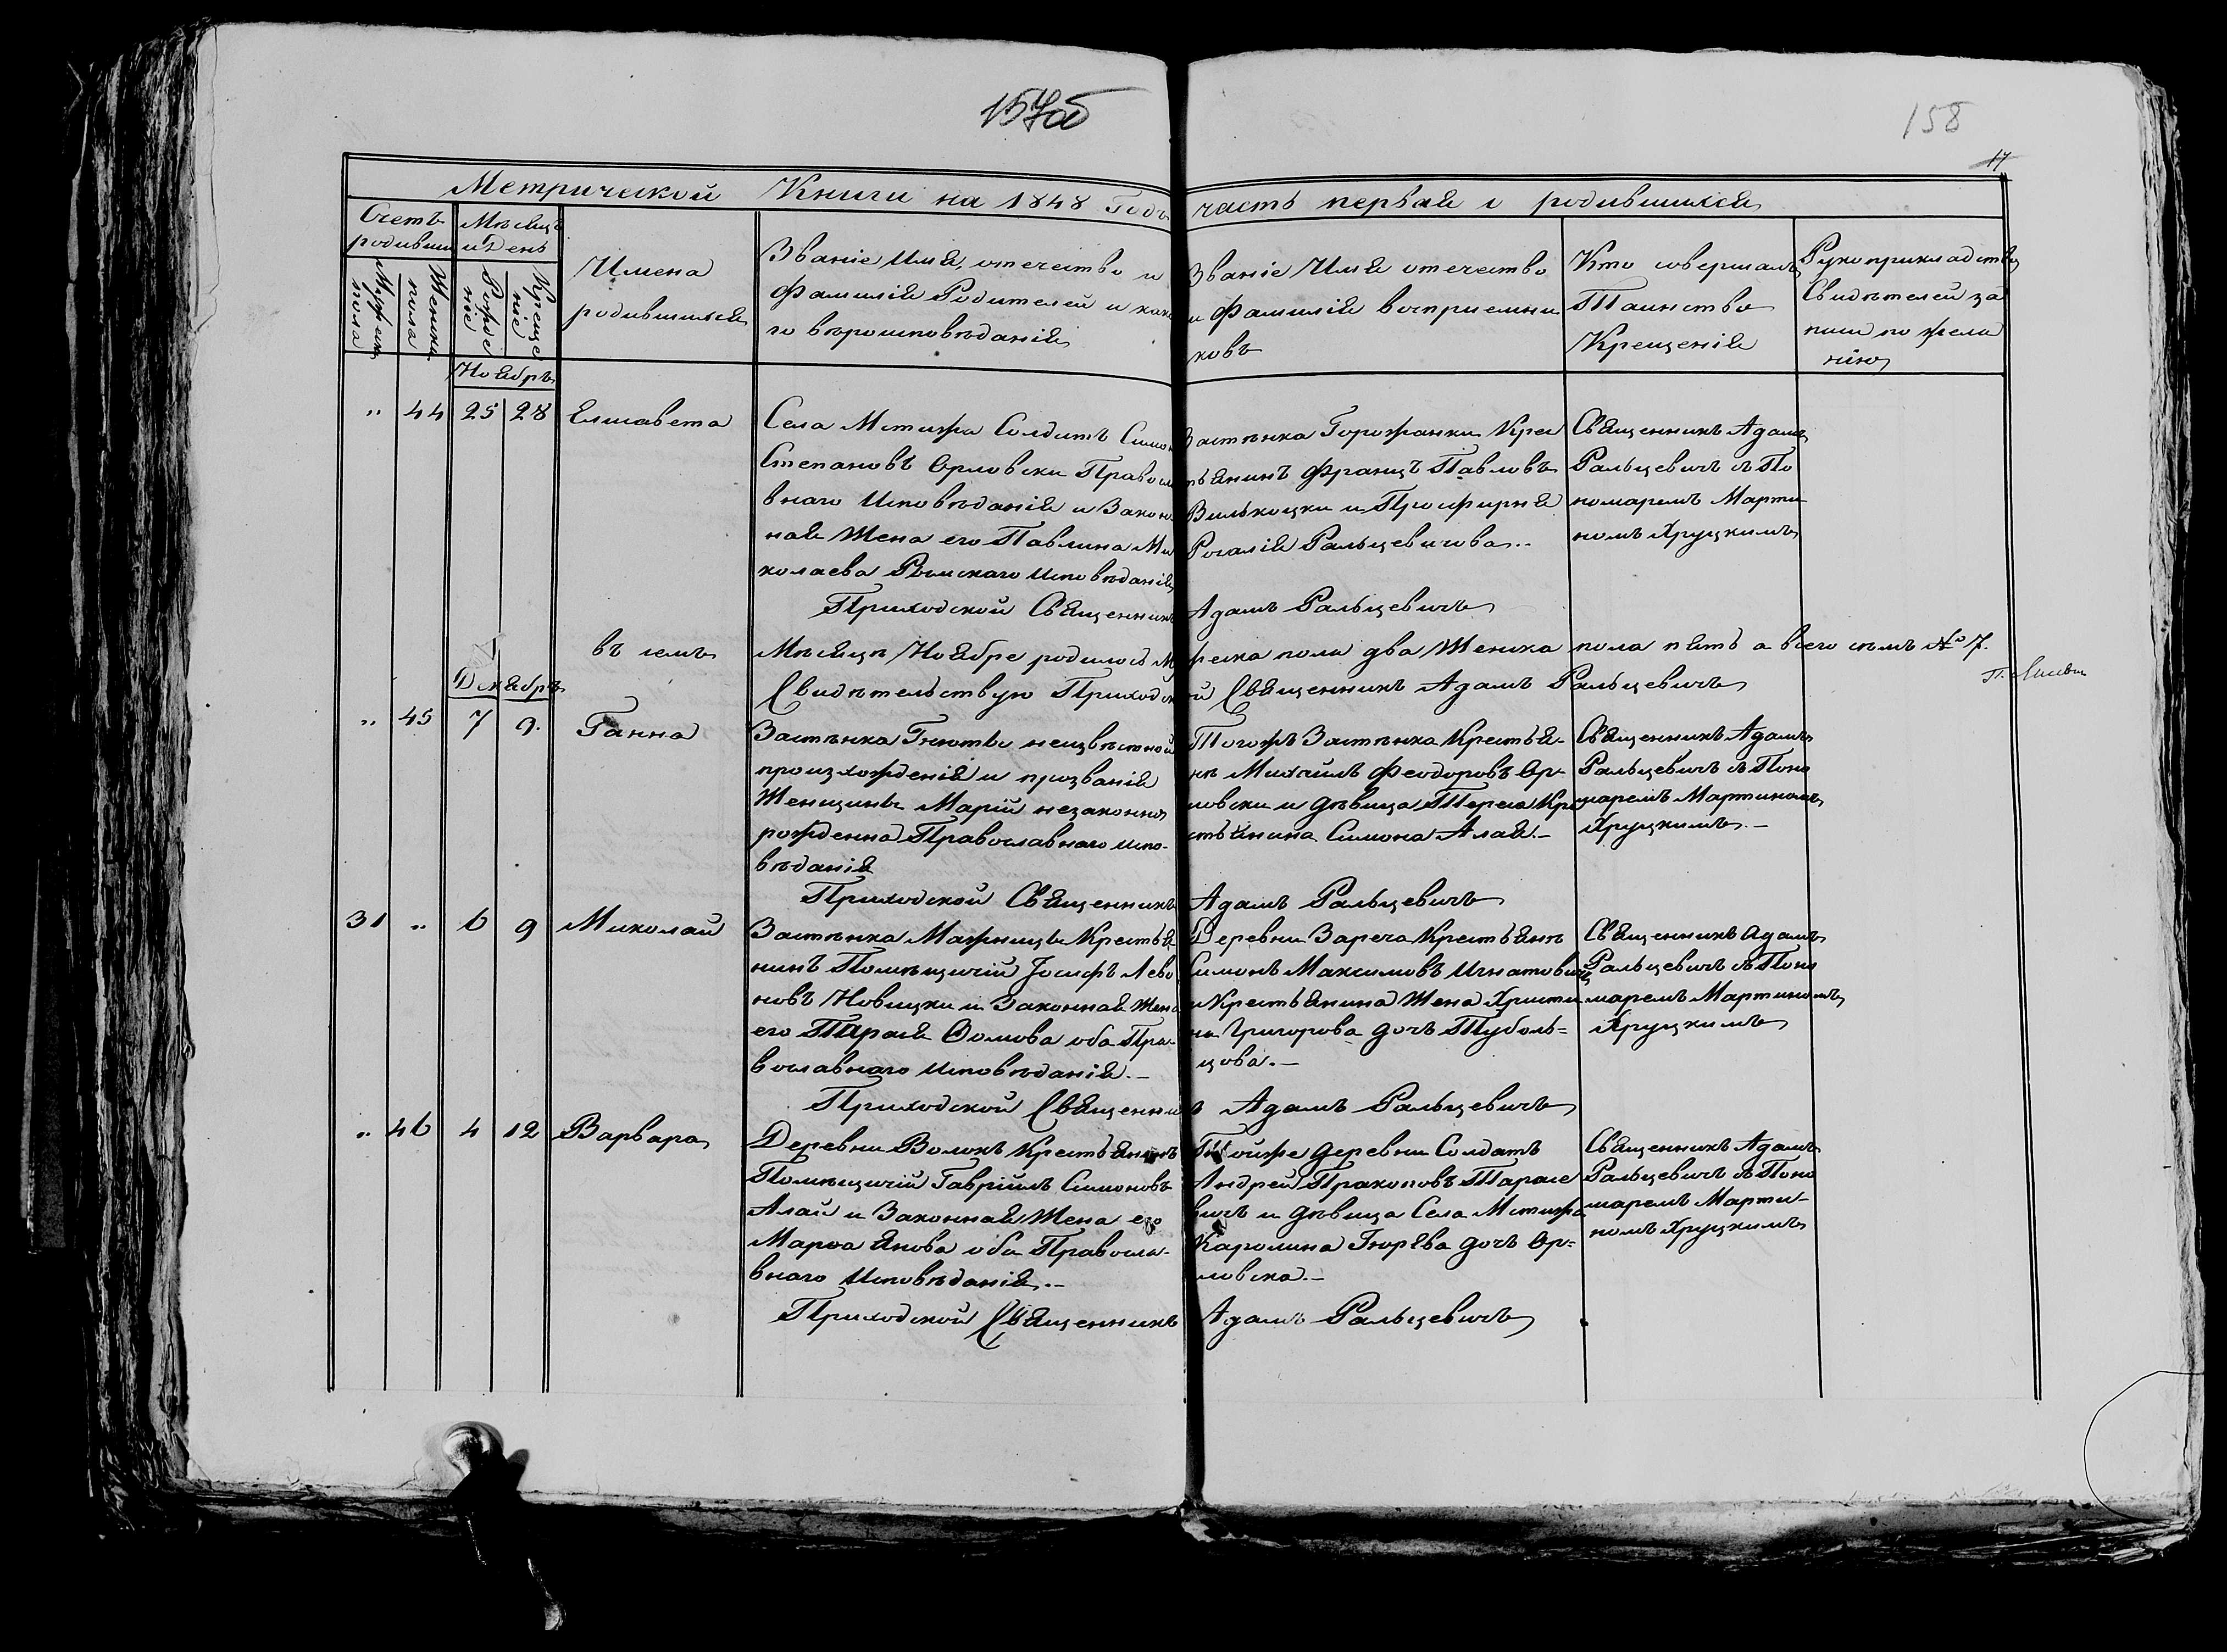 157об
158
17
Метрической Книги на 1848 Годъ часть первая о родившихся
Счетъ родивши
Мѣсяцъ и День
Имена родившихся
Званіе Имя, отечество и
фамилія Родителей и како
го вѣроисповѣданія
Званіе Имя отечество
и фамилія воспріемни
ковъ
Кто совершалъ
Таинство
Крещенія
Рукоприкладство
Свидѣтелей за
писи по жела
нію
Мужеска пола
Женска пола
Рожде ніе
Креще ніе
Ноябрь
" 44 25 28 Елисавета
Села Мстижа Солдатъ Симонъ
Степановъ Орловски Правосла
внаго Исповѣданія и Закон
ная Жена его Павлина Ми
колаева Рымскаго Исповѣданія
Застѣнка Горожанки Крес
тьянинъ Францъ Павловъ
Вилькоцки и Просфирня
Розалія Ральцевичова..
Священникъ Адамъ
Ральцевичъ съ По
номаремъ Марти
номъ Хруцкимъ
Приходской Священникъ Адамъ Ральцевичъ
въ семъ Мѣсяцѣ Ноябре родилось Мужеска пола два Женска пола пять а всего семь № 7.
Свидѣтельствую Приходской Священникъ Адамъ Ральцевичъ
Декабрь
" 45 7 9. Ганна
Застѣнка Гнюты неизвѣстной
произхожденія и прозванія
Женщины Маріи незаконно
рожденна Православнаго испо-
вѣданія
Тогожъ Застѣнка Крестья-
нъ Михаилъ Феодоровъ Ор-
ловски и дѣвица Тереса Кре
стьянина Симона Алая.-
Священникъ Адамъ
Ральцевичъ съ Поно
маремъ Мартиномъ
Хруцкимъ.-
Приходской Священникъ Адамъ Ральцевичъ
31 " 6 9 Миколай
Застѣнка Мажницы Крестья
нинъ Помѣщичій Іосифъ Лево
новъ Новицки и Законная Жена
его Парася Фомова оба Пра-
вославнаго исповѣданія.-
Деревни Зареча Крестьянъ
Симонъ Максимовъ Игнатовичъ
и Крестьянина Жена Христи
на Григорова дочь Тубель=
цова.-
Священникъ Адамъ
Ральцевичъ съ Поно
маремъ Мартиномъ
Хруцкимъ
Приходской Священникъ Адамъ Ральцевичъ
" 46 4 12 Варвара
Деревни Волокъ Крестьянинъ
Помѣщичій Гавріилъ Симоновъ
Алай и Законная Жена его
Марѳа Янова оба Правосла-
внаго Исповѣданія.-
Тойже деревни Солдатъ
Андрей Пракоповъ Тарасе
вичъ и дѣвица Села Мстижа
Каролина Гюрева дочь Ор=
ловска.-
Священникъ Адамъ
Ральцевичъ съ Поно
маремъ Марти-
номъ Хруцкимъ
Приходской Священникъ Адамъ Ральцевичъ